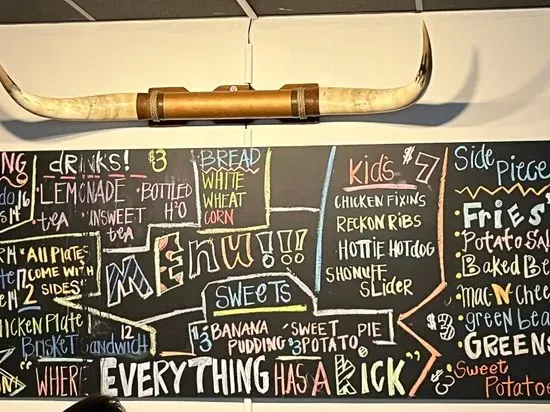 DRINKS! $3
LEMONADE
tea
"UNSWEET
tea
BOTTLED
H²O
BREAD
WHITE
WHEAT
CORN
Kid's $7
CHICKEN FIXINS
RECKON RIBS
HOTTIE HOTDOG
SHONUFF
SLIDER
Side Piece
Fries
Potato Sal
Baked Be
mac-N-Chee
green bea
GREENS
Sweet
Potato
$3
"All PLATES
COME WITH
2 SIDES"
MENU!!!
SWEETS
$3 BANANA
PUDDING
"SWEET PIE
$3 POTATO"
hicken Plate
Brisket Sandwich 12
"WHERE EVERYTHING HAS A KICK"
$3